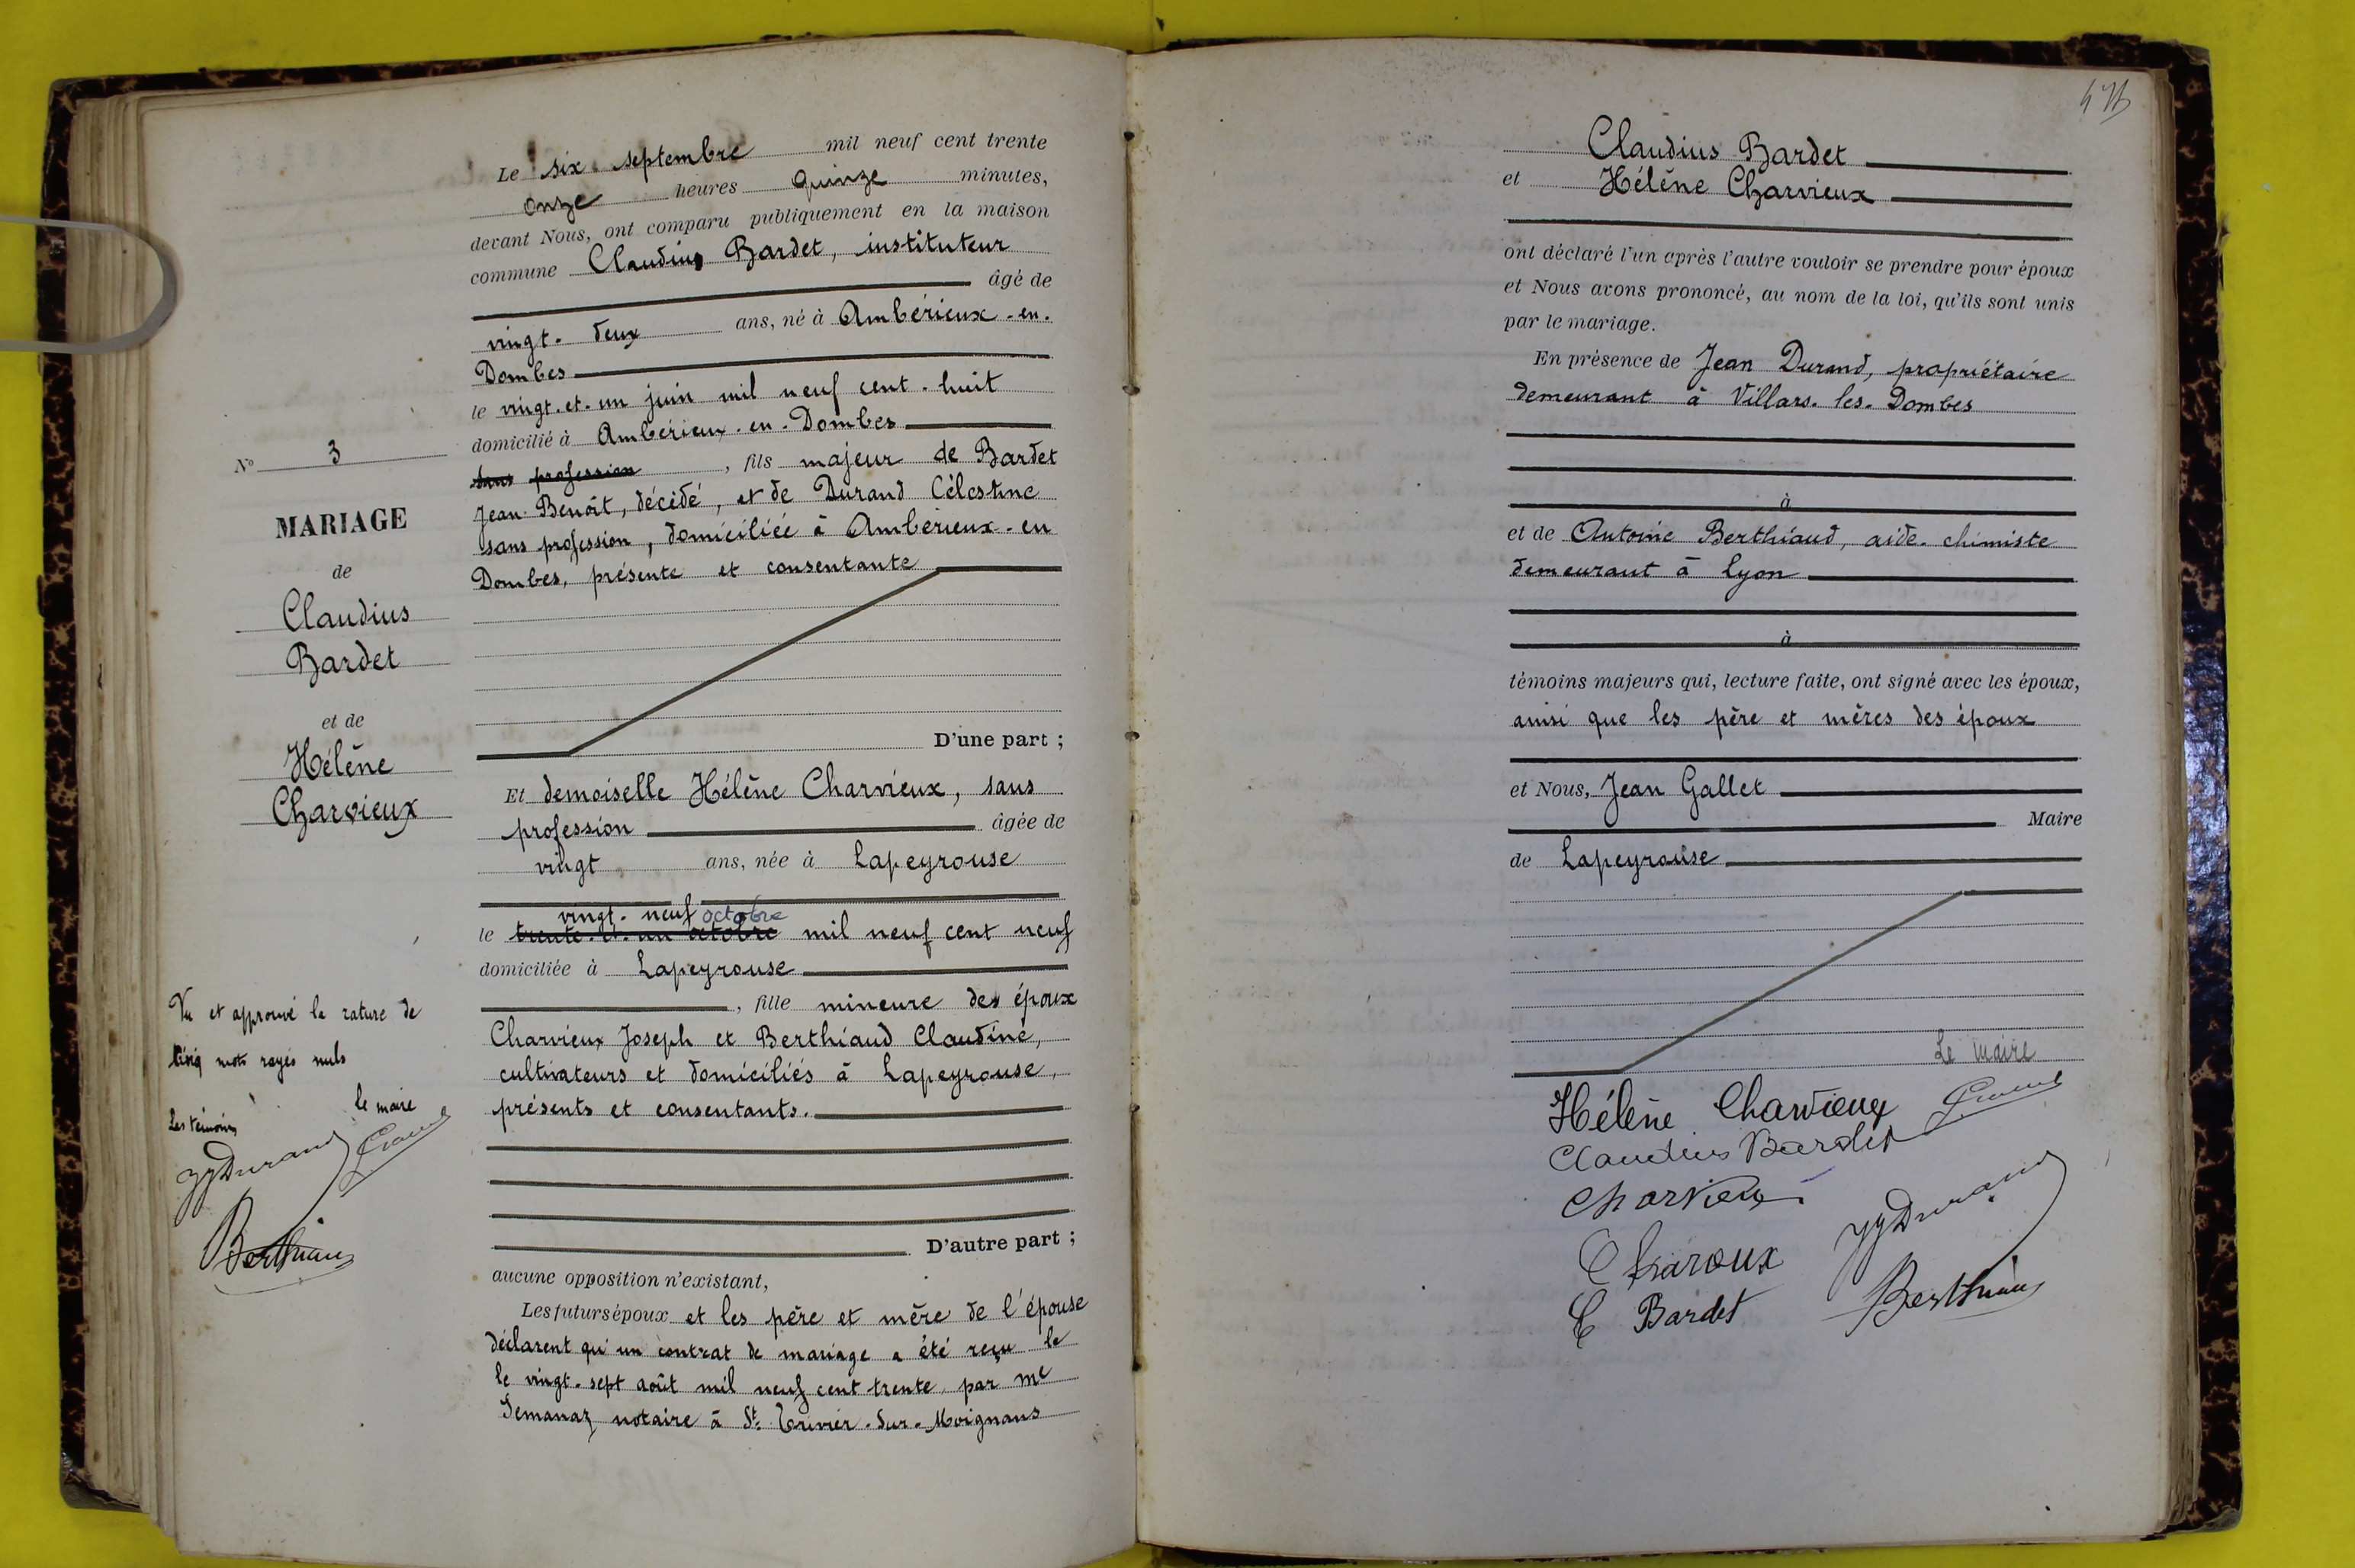 N° 3
MARIAGE
de
Claudius
Bardet
et de
Hélène
Charvieux
Vu et approuvé la rature de
cinq mots rayés nuls
le maire
Les témoins
JJDurand
Berthiaud
Le six septembre mil neuf cent trente
onze heures quinze minutes,
devant Nous, ont comparu publiquement en la maison
commune Claudius Bardet, instituteur
âgé de
vingt-deux ans, né à Ambérieux-en-
Dombes
le vingt-et-un juin mil neuf cent-huit
domicilié à Ambérieux-en-Dombes
sans profession, fils majeur de Bardet
Jean-Benoît, décédé, et de Durand Célestine
sans profession, domiciliée à Ambérieux-en
Dombes, présente et consentante
D'une part ;
Et demoiselle Hélène Charvieux, sans
profession âgée de
vingt ans, née à Lapeyrouse
vingt-neuf octobre
le trente-et-un octobre mil neuf cent neuf
domiciliée à Lapeyrouse
, fille mineure des époux
Charvieux Joseph et Berthiaud Claudine,
cultivateurs et domiciliés à Lapeyrouse,
présents et consentants.
D'autre part ;
aucune opposition n'existant,
Les futurs époux et les père et mère de l'épouse
déclarent qu'un contrat de mariage a été reçu le
le vingt-sept août mil neuf cent trente, par Me
Demanaz notaire à St-Trivier-sur-Moignans
Claudius Bardet
et Hélène Charvieux
ont déclaré l'un après l'autre vouloir se prendre pour époux
et Nous avons prononcé, au nom de la loi, qu'ils sont unis
par le mariage.
En présence de Jean Durand, propriétaire
demeurant à Villars-les-Dombes
à
et de Antoine Berthiaud, aide-chimiste
demeurant à Lyon
à
témoins majeurs qui, lecture faite, ont signé avec les époux,
ainsi que les père et mères des époux
et Nous, Jean Gallet
Maire
de Lapeyrouse
Le maire
Hélène Charvieux
Claudius Bardet
Charvieux
JJDurand
C Bardet
Berthiaud